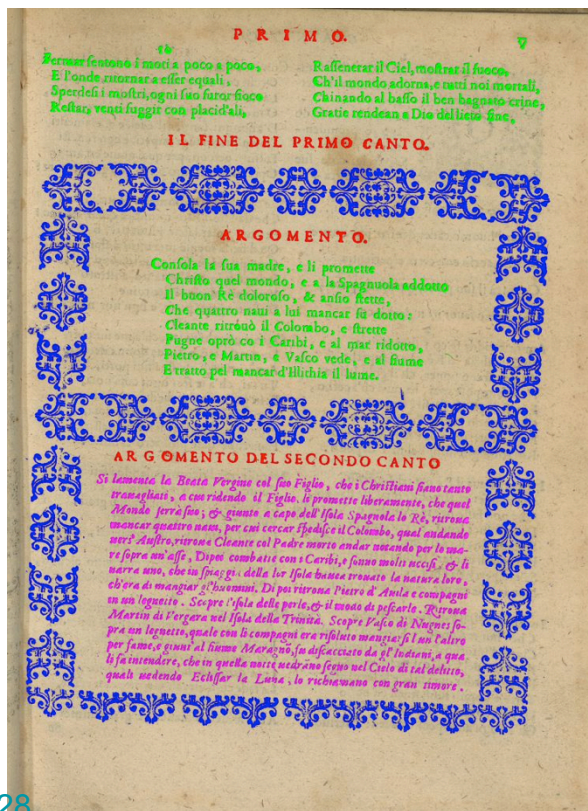 PRIMO.
V
56
Fermar sentono i moti a poco a poco,
E l'onde ritornar a esser equali,
Sperdesi i mostri, ogni suo furor fioco
Restar, venti fuggir con placid'ali,
Rasserenar il Ciel, mostrar il fuoco,
Ch'il mondo adorna, e tutti noi mortali,
Chinando al basso il ben bagnato crine,
Gratie rendean a Dio del lieto fine.
IL FINE DEL PRIMO CANTO.
ARGOMENTO.
Consola la sua madre, e li promette
Christo quel mondo; e a la Spagnuola addotto
Il buon Rè doloroso, & ansio stette,
Che quattro naui a lui mancar fù dotto:
Cleante ritrouò il Colombo, e strette
Pugne oprò co i Caribi, e al mar ridotto,
Pietro, e Martin, e Vasco vede, e al fiume
E tratto pel mancar d'Illichia il lume.
ARGOMENTO DEL SECONDO CANTO
Si lamenta la Beata Vergine col suo Figlio, che i Christiani siano tanto
trauagliati, a cui ridendo il Figlio, li promette liberamente, che quel
Mondo serrà suo; & giunto a capo dell'Isola Spagnola lo Rè, ritroua
mancar quattro naui, per cui cercar spedisce il Colombo, qual andando
uers' Austro, ritroua Cleante col Padre morto andar notando per lo ma-
re sopra un'asse, Dipoi combatte con i Caribi, e sonno molti uccisi, & li
narra uno, che in spiaggia della lor Isola hauea trouato la natura loro,
ch'era di mangiar gl'huomini. Di poi ritroua Pietro d'Auila e compagni
in un legnetto. Scopre l'isola delle perle, & il modo di pescarle. Ritroua
Martin di Vergara nel Isola della Trinità. Scopre Vasco di Nugnes so-
pra un legnetto, quale con li compagni era risoluto mangiarsi l'un l'altro
per fame, e giunti al fiume Maragnò, fu discacciato da gl'Indiani, a qua
li fa intendere, che in quella notte uedrano segno nel Cielo di tal delitto,
quali uedendo Eclissar la Luna, lo richiamano con gran timore.
28